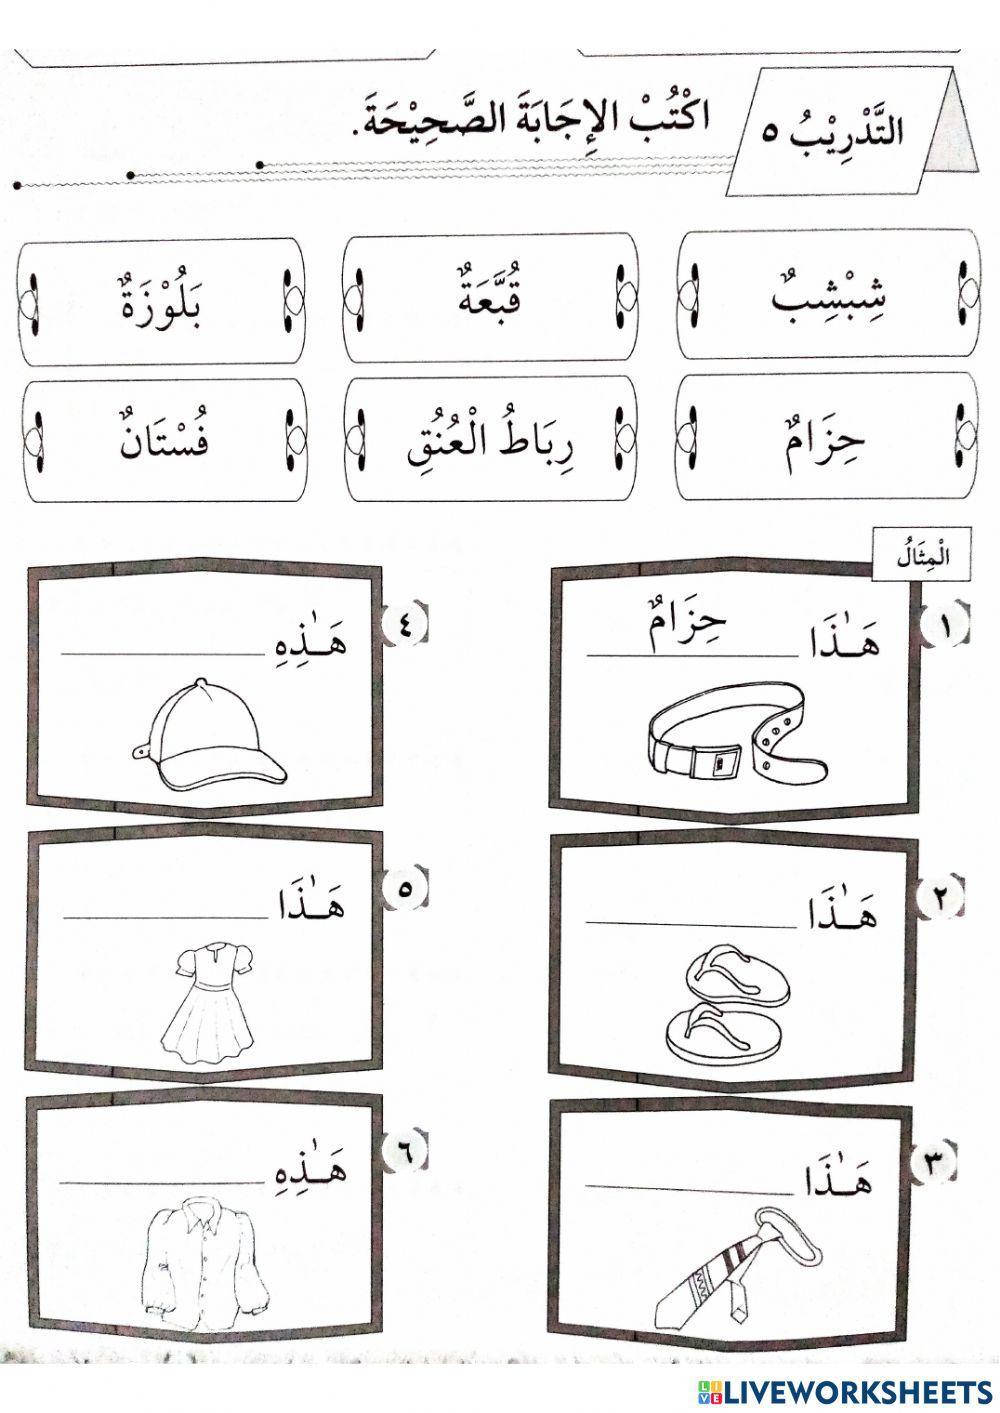 التَّدْرِيْبُ ٥
اكْتُبْ الإِجَابَةَ الصَّحِيْحَةَ.
شِبْشِبٌ
قُبَّعَةٌ
بَلُوْزَةٌ
حِزَامٌ
رِبَاطُ الْعُنُقِ
فُسْتَانٌ
الْمِثَالُ
١
هَـٰذَا حِزَامٌ
٤
هَـٰذِهِ
٢
هَـٰذَا
٥
هَـٰذَا
٣
هَـٰذَا
٦
هَـٰذِهِ
LIVEWORKSHEETS